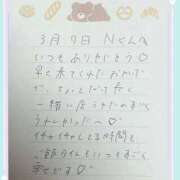 3月7日 Nくんへ
いつもありがとう♡
早く来てくれたおかげ
で、ちょっとだけ長く
一緒に居られたのまで
うれしかった〜♡
イチャイチャしてる時間も
ご飯タイムもいつもすごく
幸せです♡